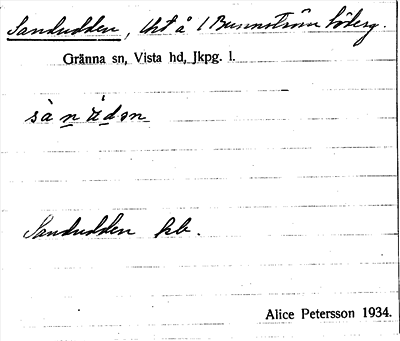 Sandudden, tht å 1 Brunnström höberg.
Gränna sn, Vista hd, Jkpg. l.
sànúdən
Sandudden kb.
Alice Petersson 1934.